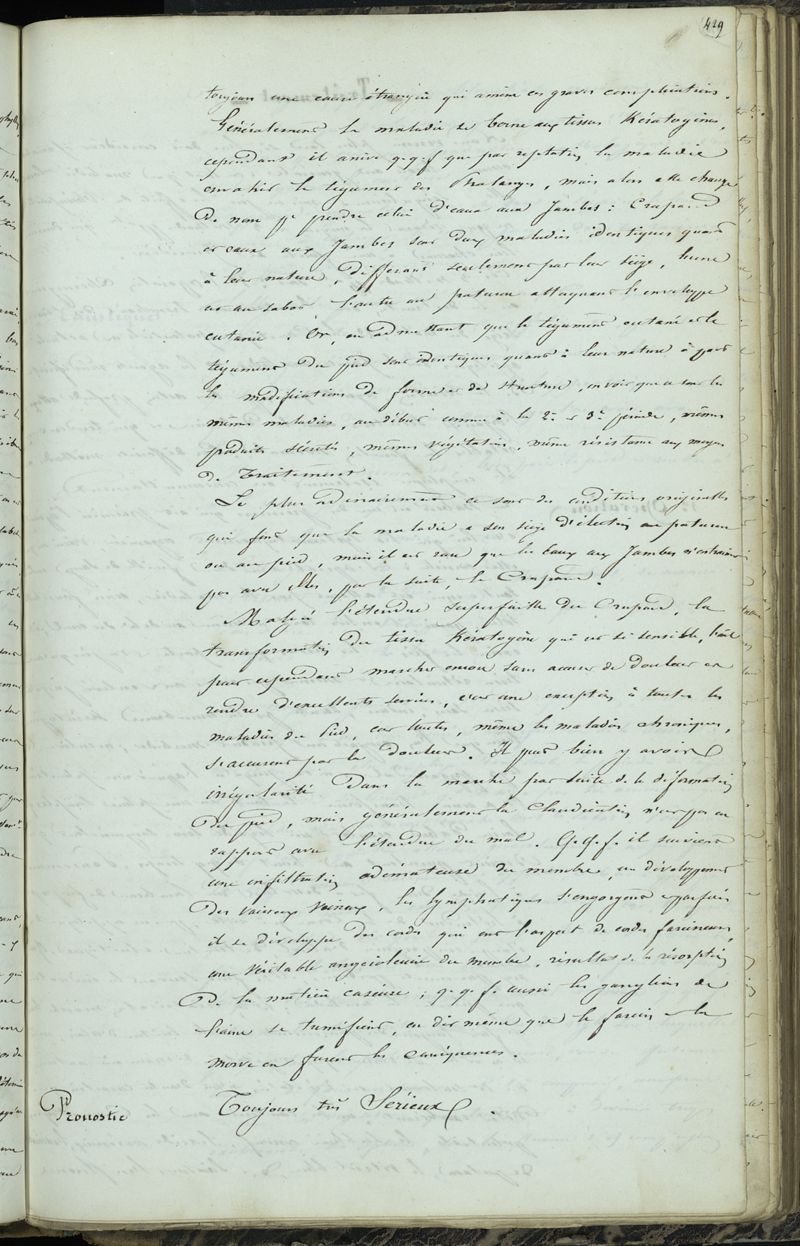 429
toujours une cause étrangère qui amène ces graves complications.
Généralement la maladie se borne aux tissus Kératogènes,
cependant il arrive q.q.f que par répétition la maladie
envahit le tégument des Phalanges, mais alors elle change
de nom pr prendre celui d'eaux aux Jambes: Crapaud
et eaux aux Jambes sont deux maladies identiques quant
à leur nature, différant seulement par leur siège, l'une
est au sabot l'autre au paturon attaquant l'enveloppe
cutanée. Or, en admettant que le tégument cutané et le
tégument du pied sont identiques quant à leur nature à part
les modifications de forme et de structure, on voit que ce sont les
mêmes maladies, au début comme à la 2e et 3e période, mêmes
produits sécrétés, mêmes végétations, même résistance aux moyens
de Traitement.
Le plus ordinairement ce sont des conditions originelles
qui font que la maladie a son siège d'élection au paturon
ou au pied, mais il est rare que les Eaux aux Jambes n'entrainent
pas avec elles, par la suite, le Crapaud.
Malgré l'étendue superficielle du Crapaud, la
transformation du tissu Kératogène qui est si sensible,
peut cependant marcher encore sans accuser de douleur et
rendre d'excellents services, c'est une exception à toutes les
maladies du Pied, car toutes, même les maladies chroniques,
s'accusent par la douleur. Il peut bien y avoir
irrégularité dans la marche par suite de la déformation
du pied, mais généralement la Claudication n'est pas en
rapport avec l'étendue du mal. Q.q.f. il survient
une infiltration oedémateuse du membre, un développement
des vaisseaux veineux, les lymphatiques s'engorgent parfois
il se développe des cordes qui ont l'aspect de cordes farcineuses,
une véritable angioleucite du membre, résultat de la résorption
de la matière caséeuse; q.q.f. aussi les ganglions de
l'aine se tuméfient, on dit même que le farcin et la
morve en furent les conséquences.
Pronostic
Toujours très Sérieux.